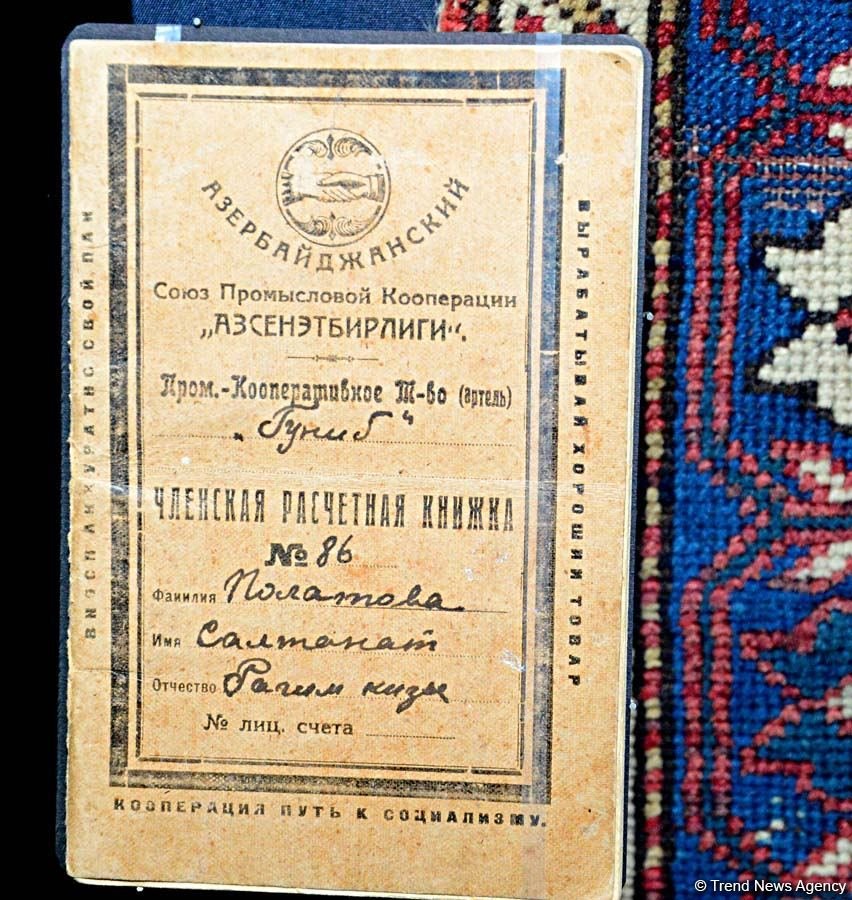 АЗЕРБАЙДЖАНСКИЙ
Союз Промысловой Кооперации
„АЗСЕНЭТБИРЛИГИ“.
Пром.-Кооперативное Т-во (артель)
„Гуниб“
ЧЛЕНСКАЯ РАСЧЕТНАЯ КНИЖКА
№ 86
Фамилия Полатова
Имя Салтанат
Отчество Рагим кизы
№ лиц. счета
ВНОСИ АККУРАТНО СВОЙ ПАЙ
ВЫРАБАТЫВАЙ ХОРОШИЙ ТОВАР
КООПЕРАЦИЯ ПУТЬ К СОЦИАЛИЗМУ.
© Trend News Agency